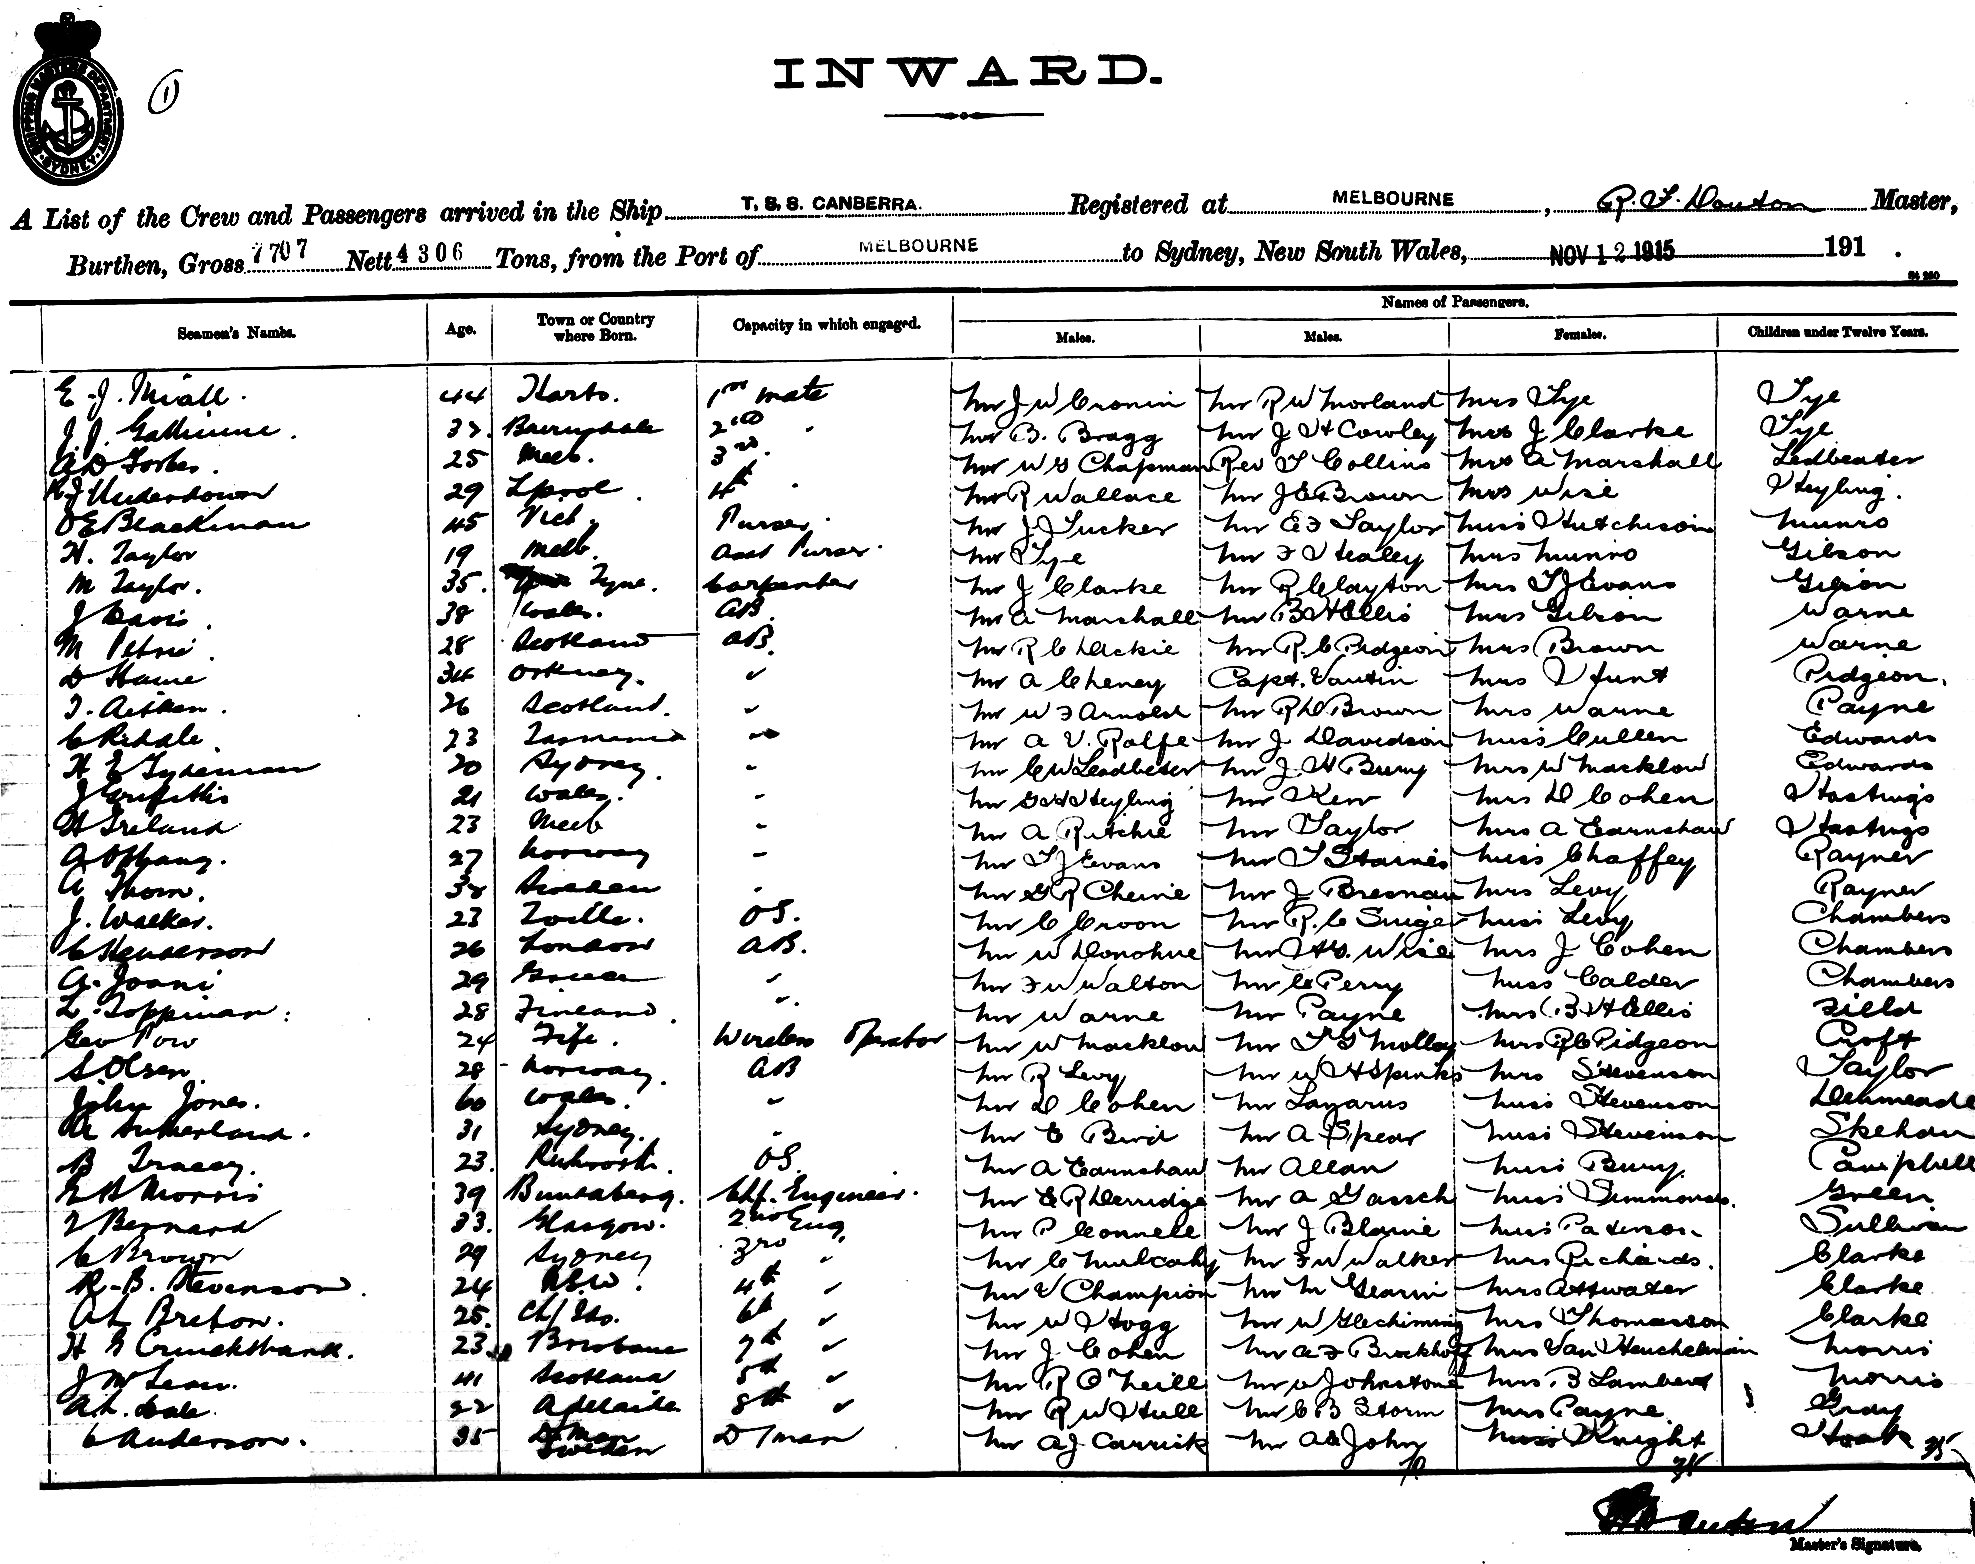 SHIPPING MASTERS DEPARTMENT SYDNEY
1
INWARD.
A List of the Crew and Passengers arrived in the Ship T.S.S. CANBERRA. Registered at MELBOURNE, Master,
Burthen, Gross 7707 Nett 4306 Tons, from the Port of MELBOURNE to Sydney, New South Wales, NOV 12 1915 191 .
Names of Passengers.
Seamen's Names. Age. Town or Country where Born. Capacity in which engaged. Males. Males. Females. Children under Twelve Years.
E. J. Miall. 44 1st mate Mr J W Cronin Mr R W Morland Mrs Tye Tye
J. J. 2nd " Mr B. Bragg Mr J H Cowley Mrs J Clarke Tye
A D Forbes. 25 Melb. 3rd. Mr W G Chapman Rev T Collins Mrs A Marshall Ledbeater
R J Underdown 29 Lpool. 4th " Mr R Wallace Mr J E Brown Mrs Wise Heyling.
O E Blackman 45 Vict. Purser. Mr J Tucker Mr E F Taylor Miss Hutchison Munro
H. Taylor 19 Melb. Asst Purser. Mr Tye Mr F Healey Mrs Munro Gibson
M Taylor. 35. Tyne. Carpenter Mr J Clarke Mr R Clayton Mrs T J Evans Gibson
J Davis. 38 Wales. AB. Mr A Marshall Mr B H Ellis Mrs Gibson Warne
M Petrie. 28 Scotland AB. Mr R C Dickie Mr R. C Pidgeon Mrs Brown Warne
D Hame 34 Orkney. " Mr A Cheney Capt. Vautin Mrs Hunt Pidgeon.
T. Aitken. 26 Scotland. " Mr W F Arnold Mr R D Brown Mrs Warne Payne
C 23 Tasmania " Mr A V. Rolfe Mr J Davidson Miss Cullen Edwards
H E Tydeman 20 Sydney. " Mr C W Leadbeter Mr J. H Bury Mrs W Macklow Edwards
J Griffiths 21 Wales. " Mr G H Heyling Mr Kew Mrs D Cohen Hastings
H Ireland 23 Melb " Mr A Ritchie Mr Taylor Mrs A Earnshaw Hastings
27 Norway " Mr T J Evans Mr T Staines Miss Chaffey Rayner
A Thorn. 38 Sweden " Mr G R Cheine Mr J Bresnan Mrs Levy Rayner
J. Walker. 23 Tville. OS. Mr C Croon Mr R. C Singer Miss Levy Chambers
C Henderson 26 London AB. Mr W Donohue Mr H G. Wise Mrs J Cohen Chambers
A. Joani 29 Greece " Mr F W Walton Mr C Perry Miss Calder Chambers
L. Toppinan. 28 Finland. " Mr Warne Mr Payne Mrs B H Ellis Field
Geo Pow 24 Fife. Wireless Operator Mr W Macklow Mr T G Molloy Mrs R C Pidgeon Croft
S. Olsen. 28 Norway. AB Mr R Levy Mr W H Spinks Mrs Stevenson Taylor
John Jones. 60 Wales. " Mr D Cohen Mr Lazarus Miss Stevenson Denmeade
A Sutherland. 31 Sydney. " Mr E Bird Mr A Spear Miss Stevenson Skehan
B Tracey. 23. OS. Mr A Earnshaw Mr Allan Miss Bury. Campbell
Morris 39 Bundaberg. Chf. Engineer. Mr E R Derridge Mr A Gassch Miss Simmonds. Green
Bernard 33. Glasgow. 2nd Eng. Mr P Connell Mr J Blaine Miss Paterson. Sullivan
C Brown 29 Sydney 3rd " Mr C Mulcahy Mr F W Walker Mrs Richards. Clarke
R. B. Stevenson. 24 N.S.W. 4th " Mr V Champion Mr M Glarin Mrs Attwater Clarke
A L Breton. 25. Ch/ Is. 6th " Mr W Hogg Mr W Mrs Thomasson Clarke
H Cruickshank. 23 Brisbane 7th " Mr J Cohen Mr A F Brockhoff Mrs Van Heuckelman Morris
J McLean. 41 Scotland 5th " Mr R O'Neill Mr W Johnstone Mrs B Lambert Morris
A. L. Dale. 22 Adelaide 8th " Mr R W Hull Mr C B Storm Mrs Payne Gray
C Anderson. 35 Sweden D/man Mr A J Carrick Mr A E John Miss Knight
70
Master's Signature.